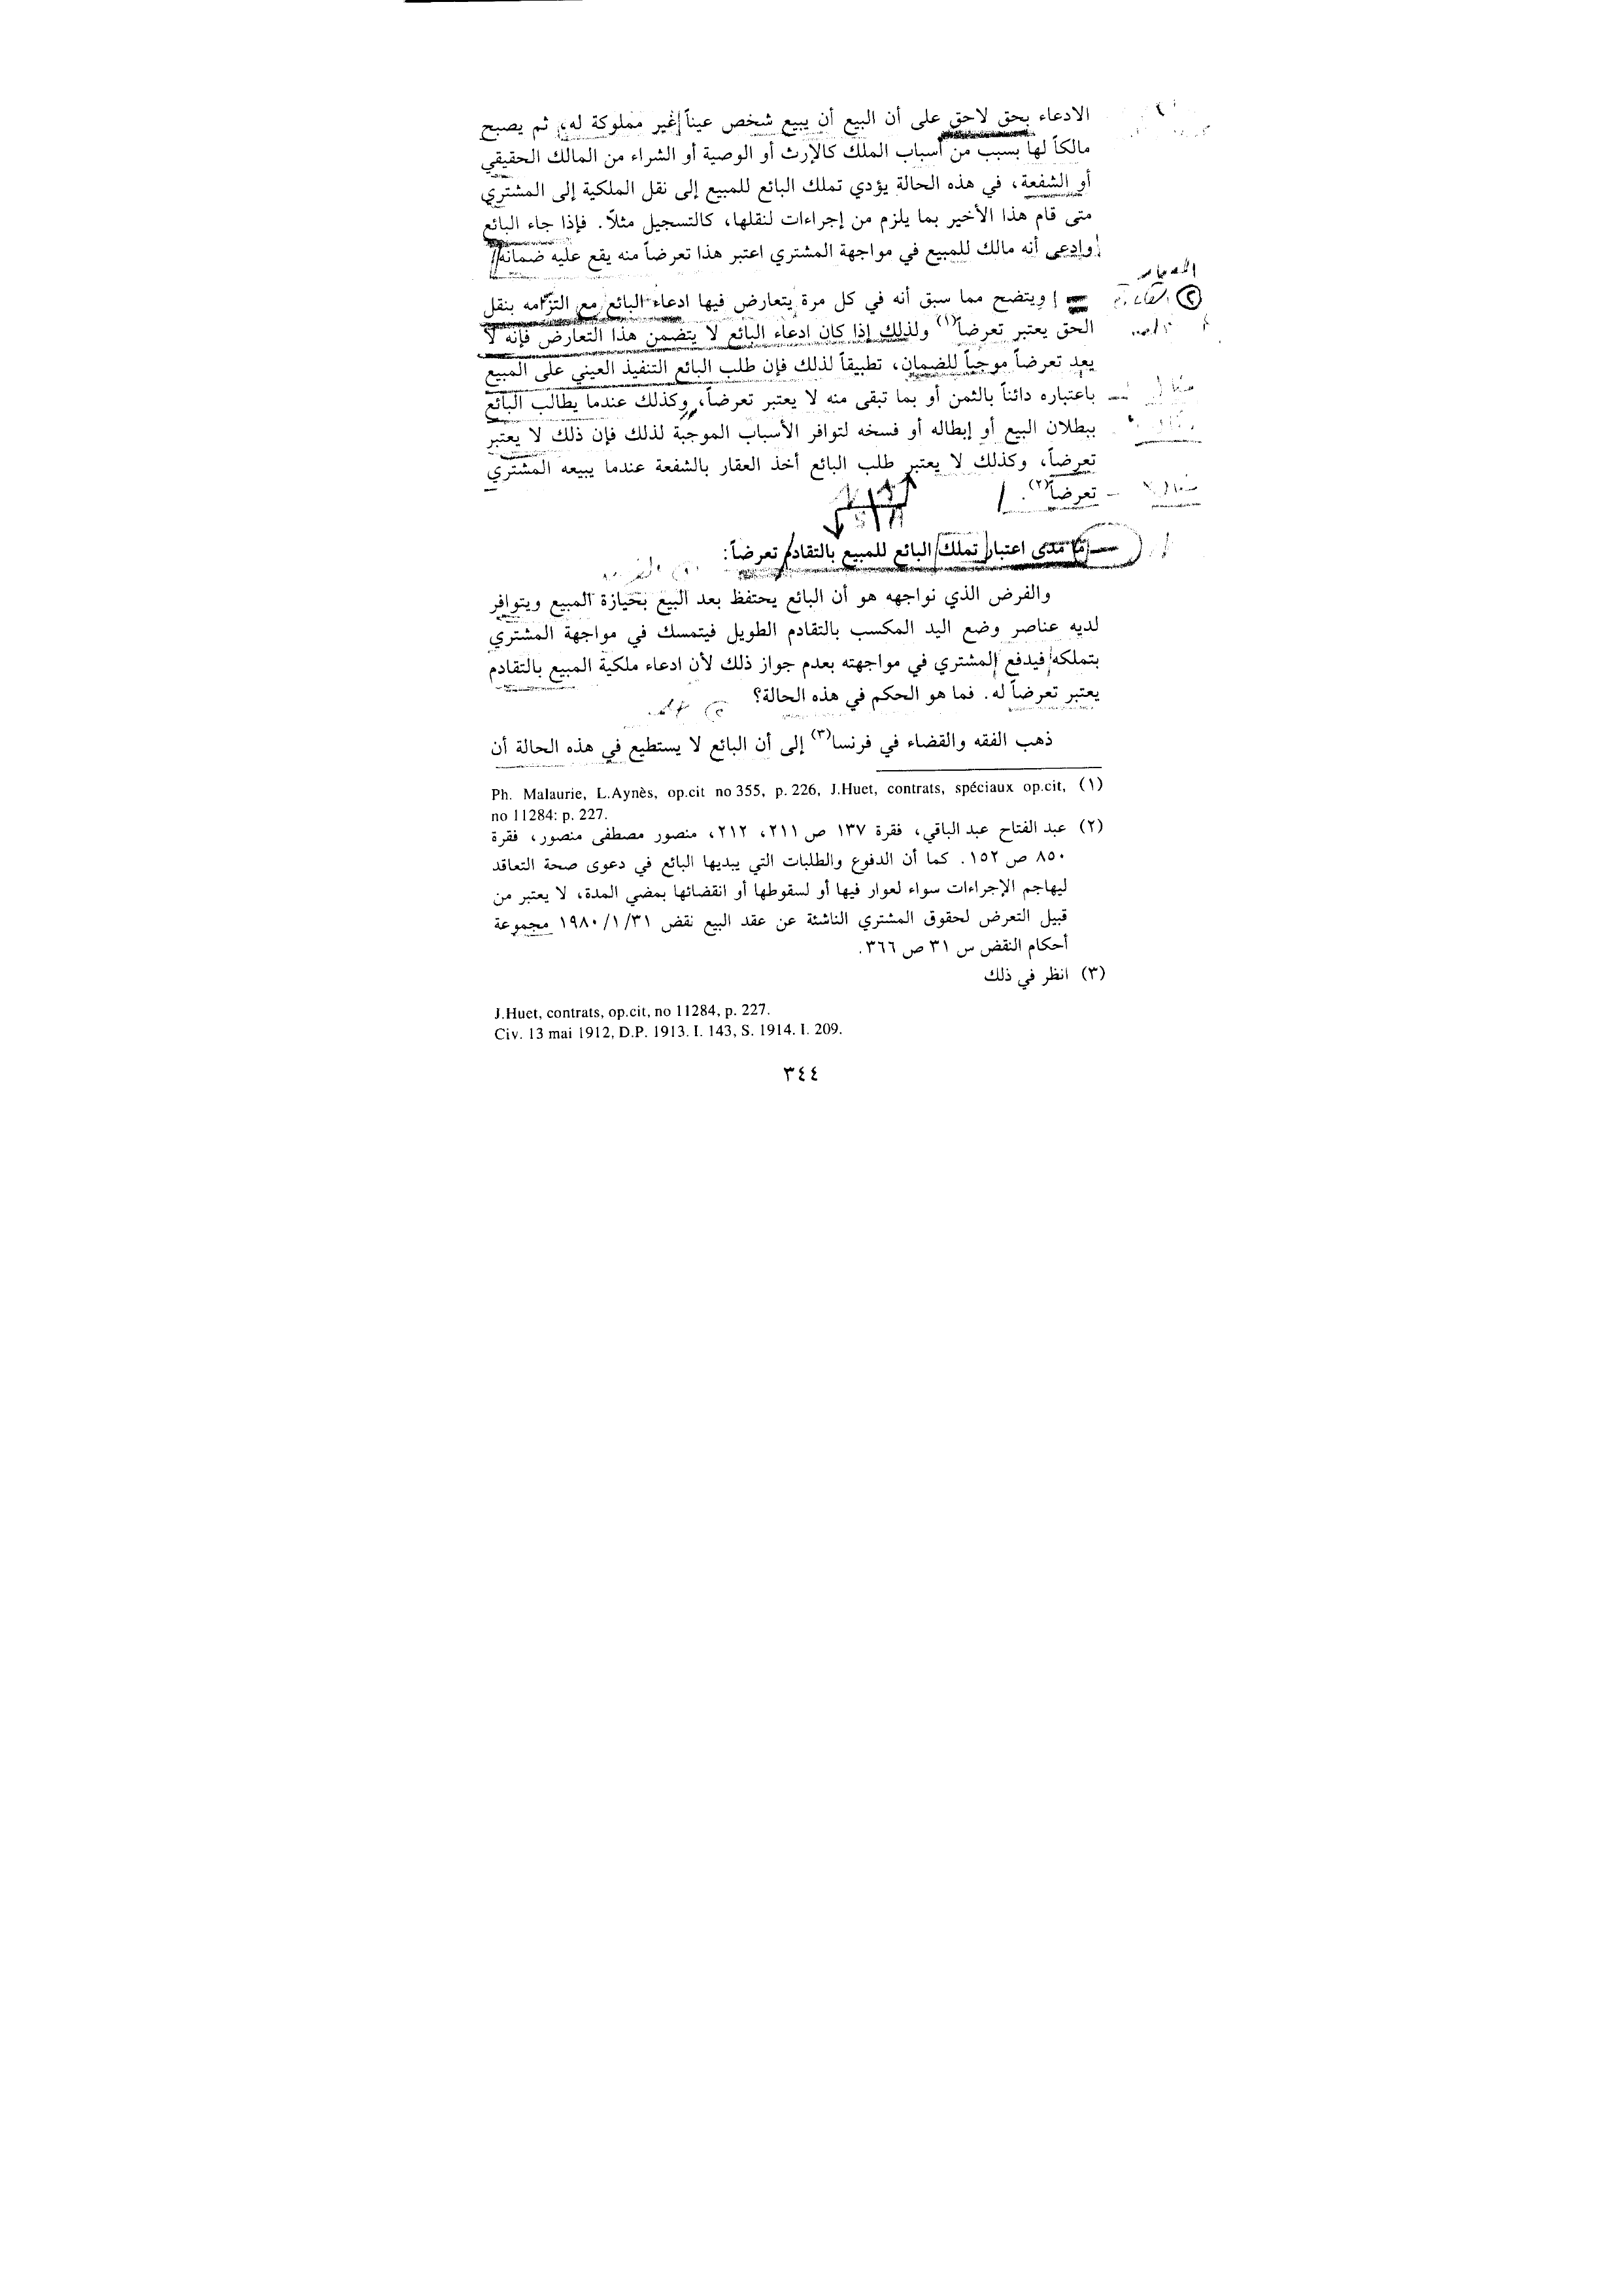 الادعاء بحق لاحق على أن البيع أن يبيع شخص عيناً غير مملوكة له، ثم يصبح
مالكاً لها بسبب من أسباب الملك كالإرث أو الوصية أو الشراء من المالك الحقيقي
أو الشفعة، في هذه الحالة يؤدي تملك البائع للمبيع إلى نقل الملكية إلى المشتري
متى قام هذا الأخير بما يلزم من إجراءات لنقلها، كالتسجيل مثلاً. فإذا جاء البائع
وادعى أنه مالك للمبيع في مواجهة المشتري اعتبر هذا تعرضاً منه يقع عليه ضمانه
ويتضح مما سبق أنه في كل مرة يتعارض فيها ادعاء البائع مع التزامه بنقل
الحق يعتبر تعرضاً(١) ولذلك إذا كان ادعاء البائع لا يتضمن هذا التعارض فإنه لا
يعد تعرضاً موجباً للضمان، تطبيقاً لذلك فإن طلب البائع التنفيذ العيني على المبيع
باعتباره دائناً بالثمن أو بما تبقى منه لا يعتبر تعرضاً، وكذلك عندما يطالب البائع
ببطلان البيع أو إبطاله أو فسخه لتوافر الأسباب الموجبة لذلك فإن ذلك لا يعتبر
تعرضاً، وكذلك لا يعتبر طلب البائع أخذ العقار بالشفعة عندما يبيعه المشتري
تعرضاً(٢).
ما مدى اعتبار تملك البائع للمبيع بالتقادم تعرضاً:
والفرض الذي نواجهه هو أن البائع يحتفظ بعد البيع بحيازة المبيع ويتوافر
لديه عناصر وضع اليد المكسب بالتقادم الطويل فيتمسك في مواجهة المشتري
بتملكه فيدفع المشتري في مواجهته بعدم جواز ذلك لأن ادعاء ملكية المبيع بالتقادم
يعتبر تعرضاً له. فما هو الحكم في هذه الحالة؟
ذهب الفقه والقضاء في فرنسا(٣) إلى أن البائع لا يستطيع في هذه الحالة أن
(١) Ph. Malaurie, L.Aynès, op.cit no 355, p. 226, J.Huet, contrats, spéciaux op.cit,
no 11284: p. 227.
(٢) عبد الفتاح عبد الباقي، فقرة ١٣٧ ص ٢١١، ٢١٢، منصور مصطفى منصور، فقرة
٨٥٠ ص ١٥٢. كما أن الدفوع والطلبات التي يبديها البائع في دعوى صحة التعاقد
ليهاجم الإجراءات سواء لعوار فيها أو لسقوطها أو انقضائها بمضي المدة، لا يعتبر من
قبيل التعرض لحقوق المشتري الناشئة عن عقد البيع نقض ١٩٨٠/١/٣١ مجموعة
أحكام النقض س ٣١ ص ٣٦٦.
(٣) انظر في ذلك
J.Huet, contrats, op.cit, no 11284, p. 227.
Civ. 13 mai 1912, D.P. 1913. I. 143, S. 1914. I. 209.
٣٤٤